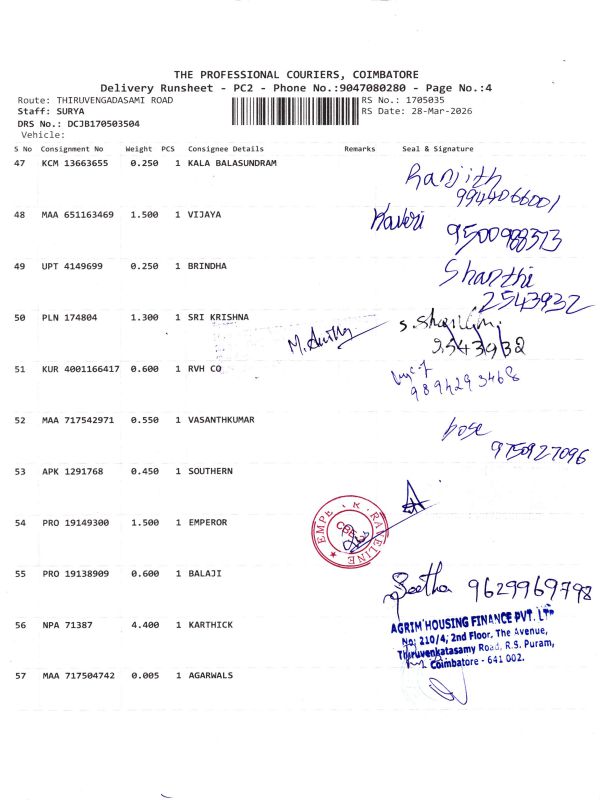 THE PROFESSIONAL COURIERS, COIMBATORE
Delivery Runsheet - PC2 - Phone No.:9047080280 - Page No.:4
Route: THIRUVENGADASAMI ROAD RS No.: 1705035
Staff: SURYA RS Date: 28-Mar-2026
DRS No.: DCJB170503504
Vehicle:
S No Consignment No Weight PCS Consignee Details Remarks Seal & Signature
47 KCM 13663655 0.250 1 KALA BALASUNDRAM Ranjith
9944066001
48 MAA 651163469 1.500 1 VIJAYA Kaveri
9500988373
49 UPT 4149699 0.250 1 BRINDHA Shanthi
2543932
50 PLN 174804 1.300 1 SRI KRISHNA
2543932
51 KUR 4001166417 0.600 1 RVH CO
9894293468
52 MAA 717542971 0.550 1 VASANTHKUMAR bose
9750927096
53 APK 1291768 0.450 1 SOUTHERN
54 PRO 19149300 1.500 1 EMPEROR
CBE
55 PRO 19138909 0.600 1 BALAJI Seetha 9629969798
56 NPA 71387 4.400 1 KARTHICK
AGRIM HOUSING FINANCE PVT. LTD
No: 210/4, 2nd Floor, The Avenue,
Thiruvenkatasamy Road, R.S. Puram,
Coimbatore - 641 002.
57 MAA 717504742 0.005 1 AGARWALS